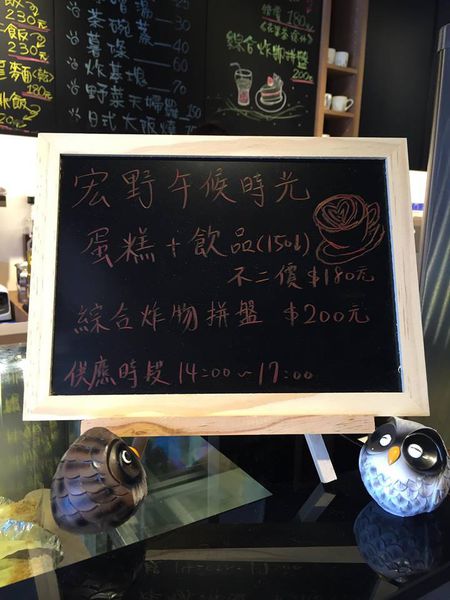 230元
230元
180元
茶碗蒸 60
薯條 50
炸基塊 70
野菜天婦羅 150
日式大阪燒
180元
綜合炸物拼盤
200元
宏野午候時光
蛋糕+飲品(150↓)
不二價$180元
綜合炸物拼盤 $200元
供應時段 14:00~17:00